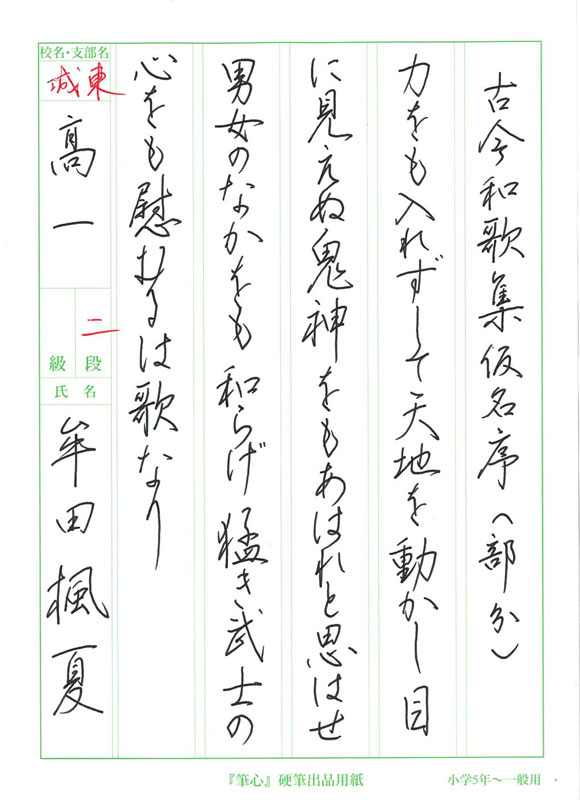 古今和歌集仮名序（部分）
力をも入れずして天地を動かし目
に見えぬ鬼神をもあはれと思はせ
男女のなかをも和らげ猛き武士の
心をも慰むるは歌なり
校名・支部名
城東
高一
二
段
級
氏名
牟田楓夏
『筆心』硬筆出品用紙
小学5年～一般用